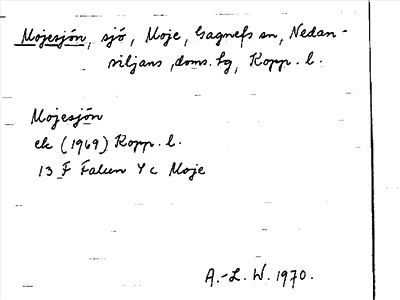 Mojesjön, sjö, Moje, Gagnefs sn, Nedan-
siljans doms. hg, Kopp. l.
Mojesjön
ek (1969) Kopp. l.
13 F Falun Y c Moje
A.-L. W. 1970.